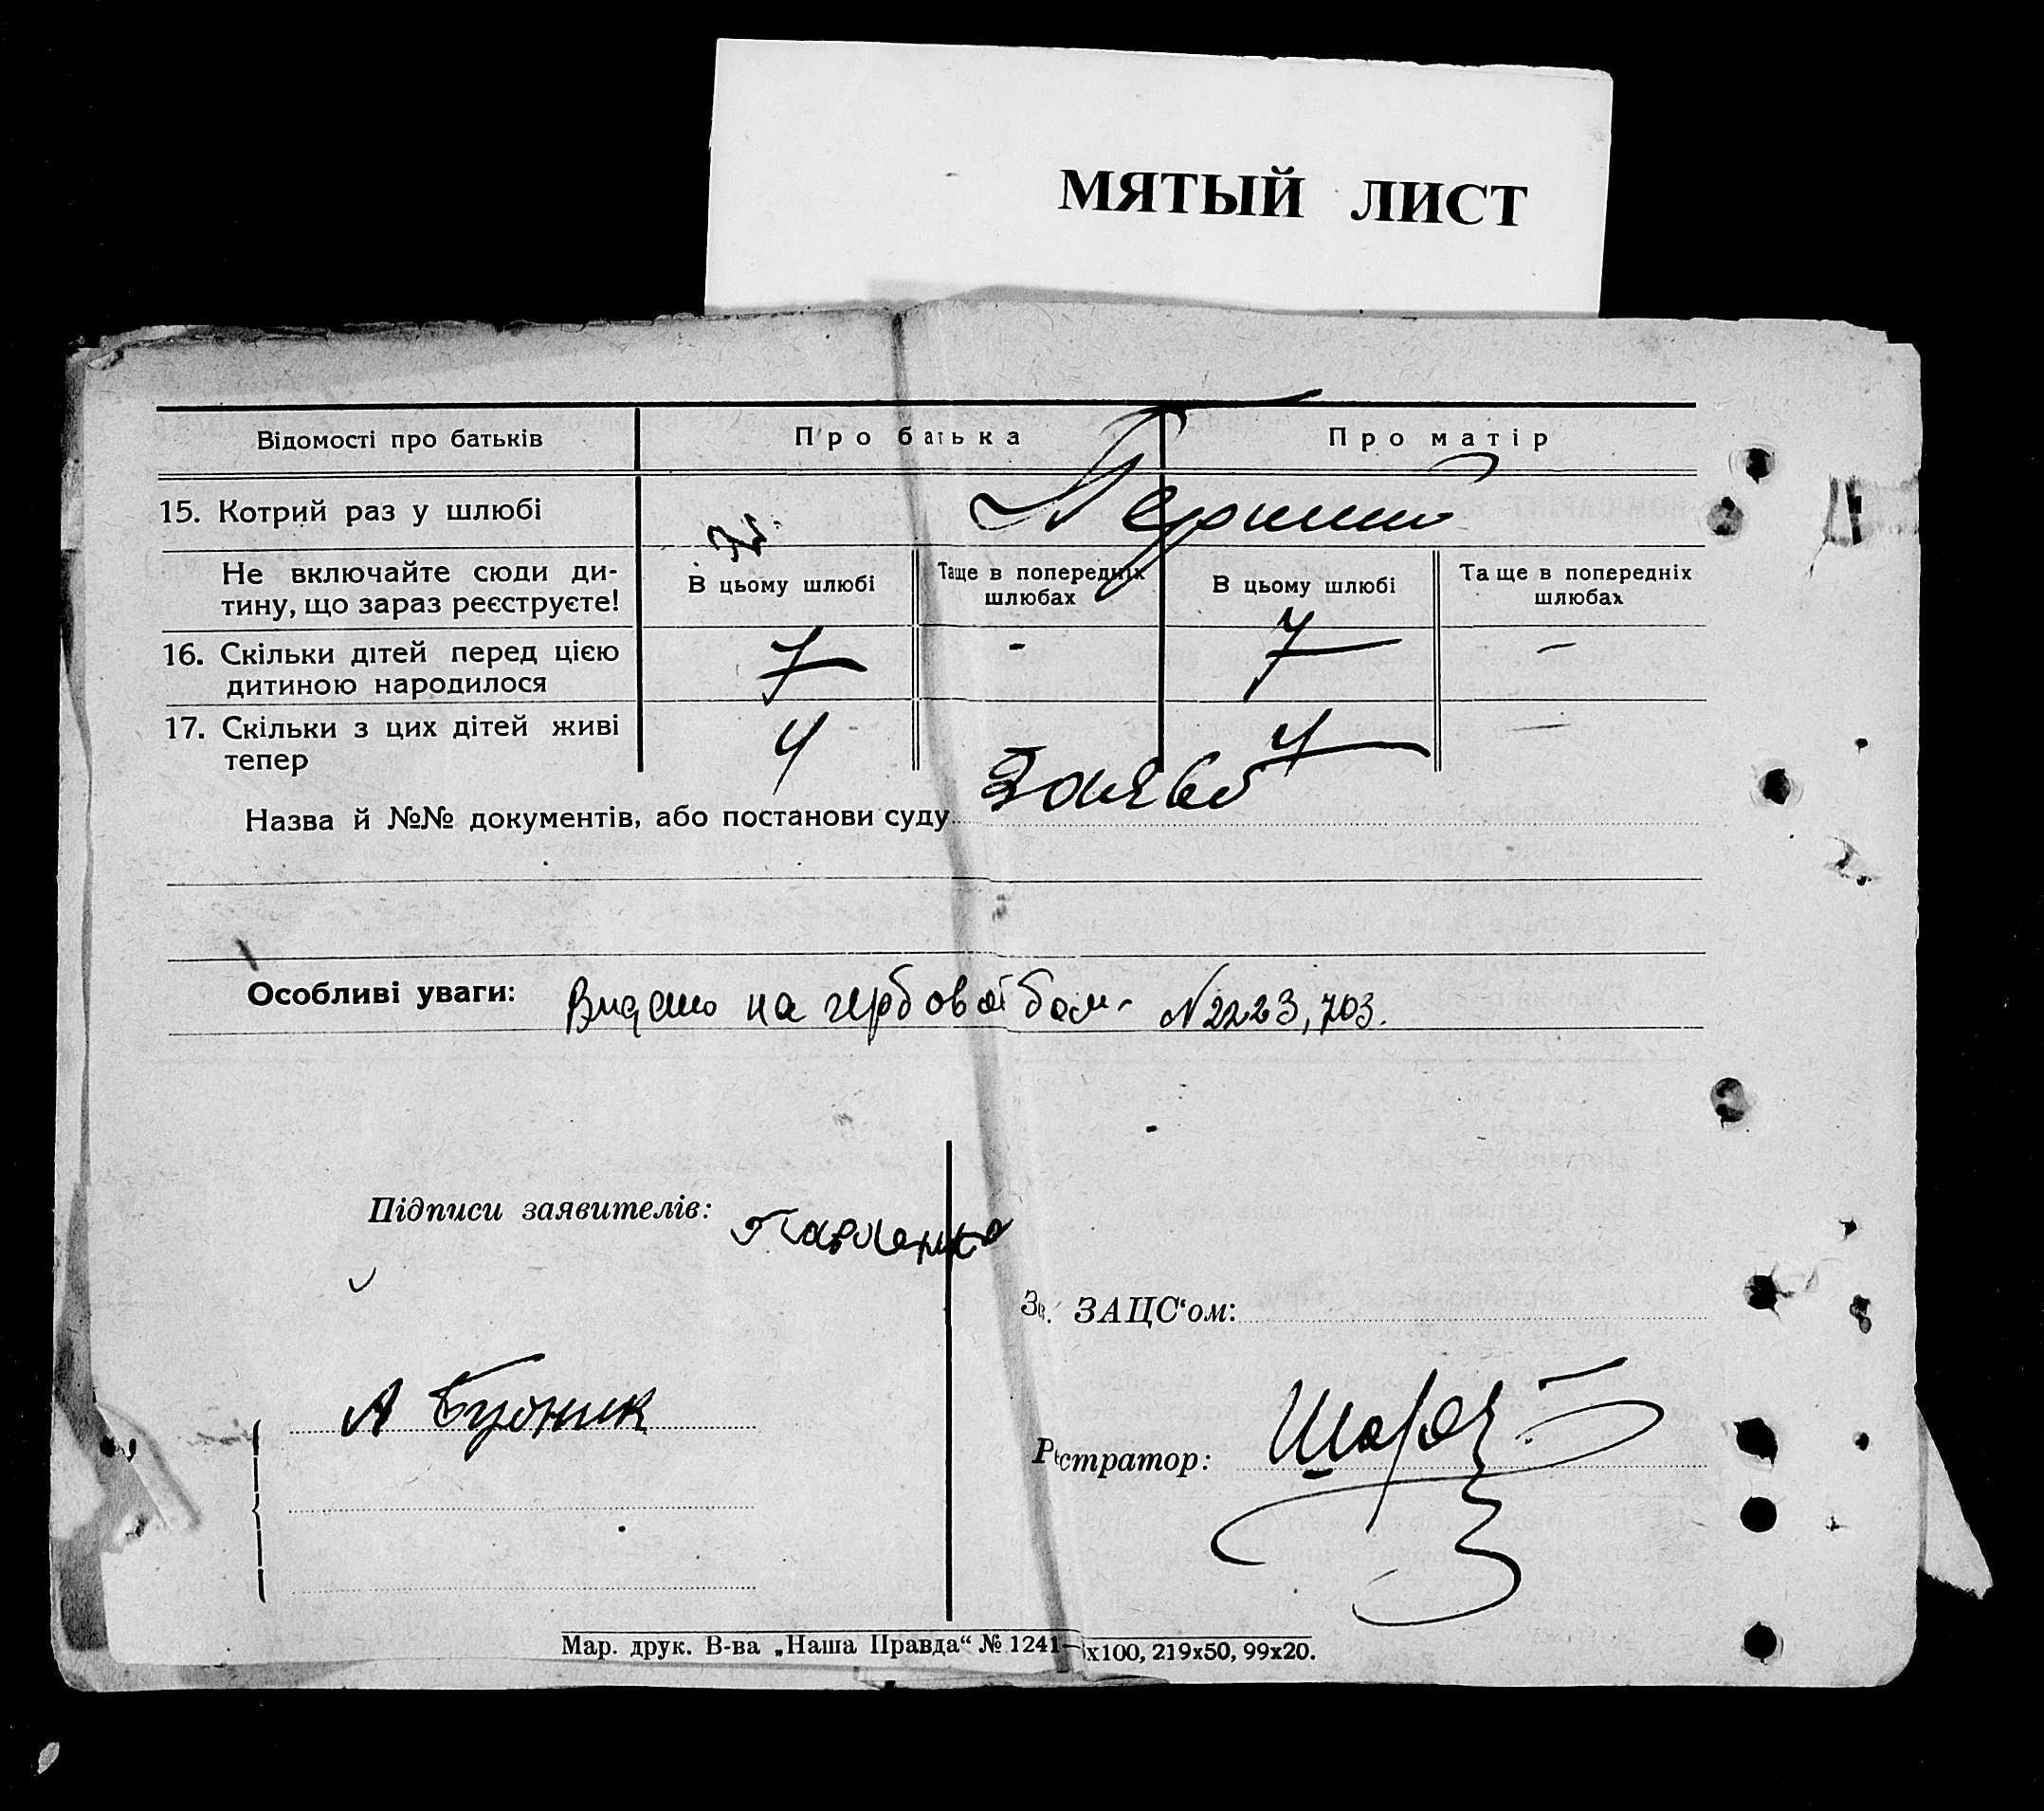 МЯТЫЙ ЛИСТ
Відомості про батьків Про батька Про матір
15. Котрий раз у шлюбі
Не включайте сюди ди-
тину, що зараз реєструєте!
В цьому шлюбі Та ще в попередніх шлюбах В цьому шлюбі Та ще в попередніх шлюбах
16. Скільки дітей перед цією
дитиною народилося
7 - 7 -
17. Скільки з цих дітей живі
тепер
4 - 4 -
Назва й №№ документів, або постанови суду
Особливі уваги: Видано на гербовой бом. N 2223,703.
Підписи заявителів: Павленко
Зав. ЗАЦС‘ом:
А Будник
Реєстратор:
Мар. друк. В-ва „Наша Правда“ № 1241— х100, 219х50, 99х20.